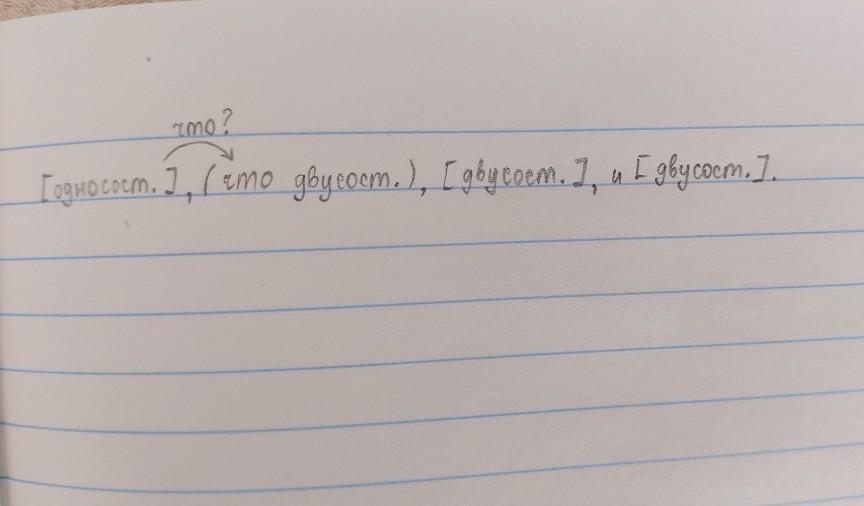 что?
[односост.], (что двусост.), [двусост.], и [двусост.].